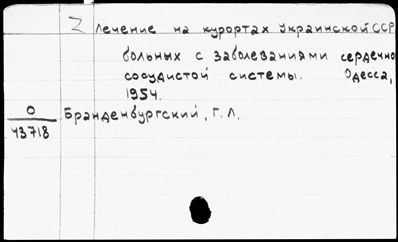 Z Лечение на курортах Украинской ССР
больных с заболеваниями сердечно
сосудистой системы. Одесса,
1954.
О
43718
Бранденбургский, Г. Л.